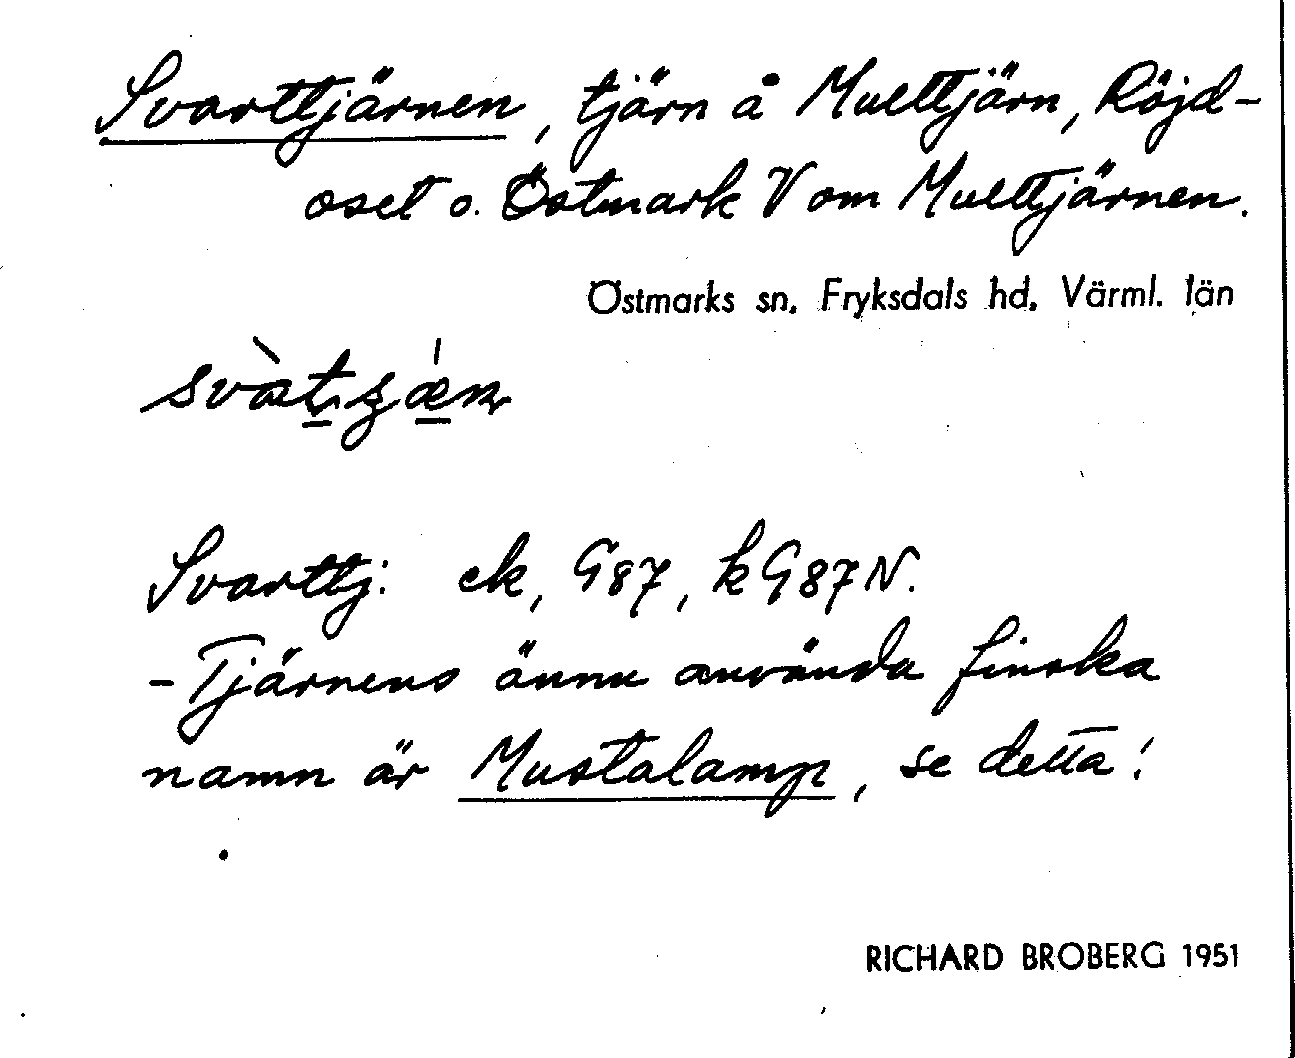 Svarttjärnen, tjärn å Mulltjärn, Röjd-
oset o. Östmark V om Mulltjärnen.
Östmarks sn. Fryksdals hd. Värml. län
Svarttj: ek, G87, k G87N.
- Tjärnens ännu använda finska
namn är Mustalamp, se detta!
RICHARD BROBERG 1951